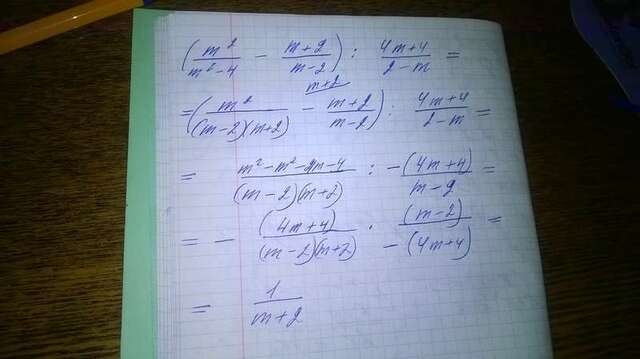 (m²/(m²-4) - (m+2)/(m-2)) : (4m+4)/(2-m) =
m+2
= (m²/((m-2)(m+2)) - (m+2)/(m-2)) : (4m+4)/(2-m) =
= (m²-m²-4m-4)/((m-2)(m+2)) : -(4m+4)/(m-2) =
= - (4m+4)/((m-2)(m+2)) · (m-2)/-(4m+4) =
= 1/(m+2)